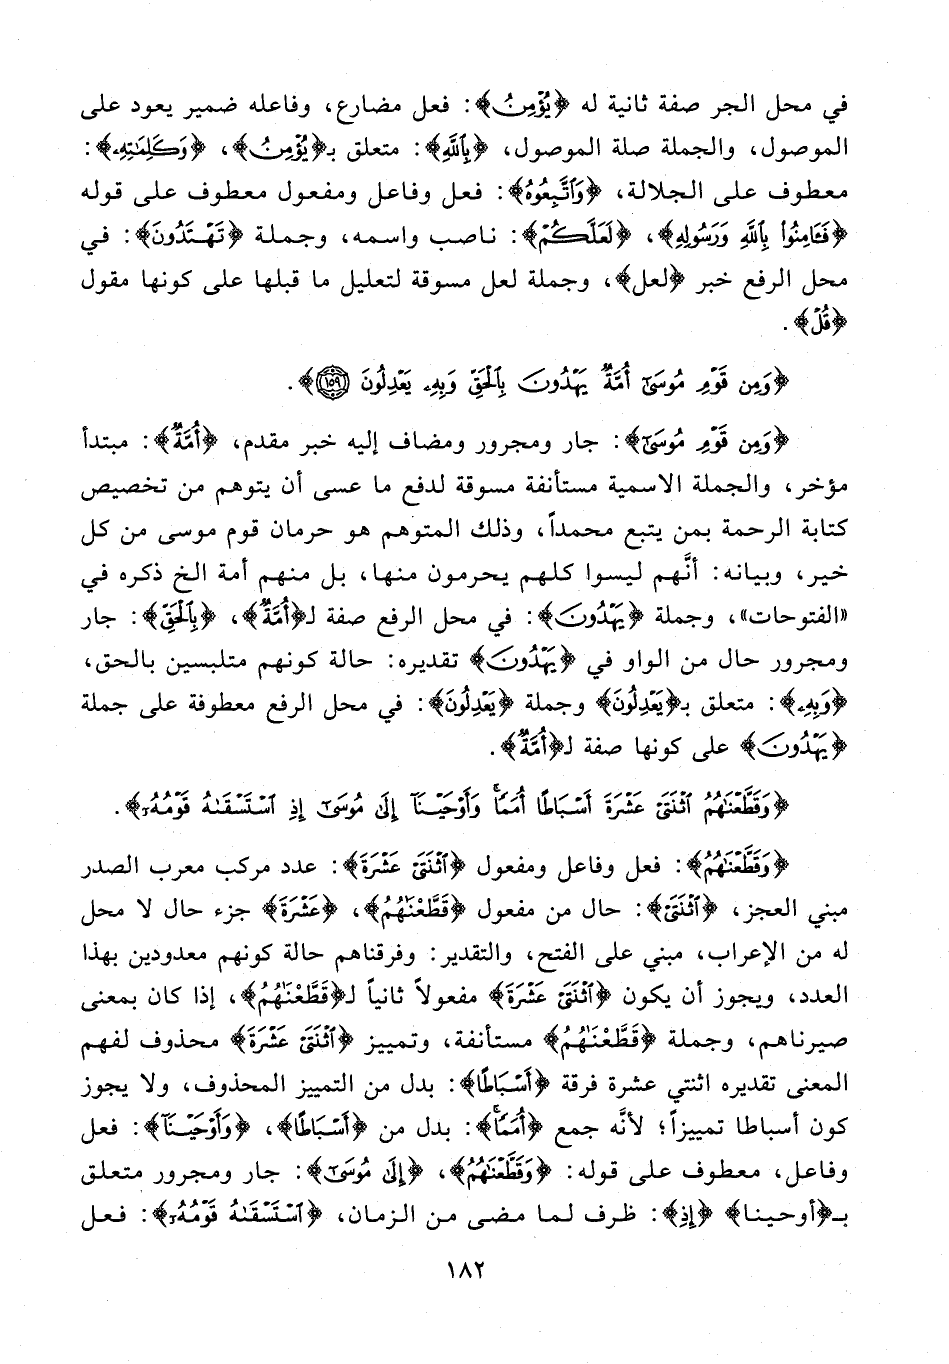 في محل الجر صفة ثانية له ﴿يُؤْمِنُ﴾: فعل مضارع، وفاعله ضمير يعود على
الموصول، والجملة صلة الموصول، ﴿بِاللَّهِ﴾: متعلق بـ﴿يُؤْمِنُ﴾، ﴿وَكَلِمَٰتِهِۦ﴾:
معطوف على الجلالة، ﴿وَاتَّبِعُوهُ﴾: فعل وفاعل ومفعول معطوف على قوله
﴿فَـَٔامِنُوا۟ بِٱللَّهِ وَرَسُولِهِ﴾، ﴿لَعَلَّكُمْ﴾: ناصب واسمه، وجملة ﴿تَهْتَدُونَ﴾: في
محل الرفع خبر ﴿لعل﴾، وجملة لعل مسوقة لتعليل ما قبلها على كونها مقول
﴿قُلْ﴾.
﴿وَمِن قَوْمِ مُوسَىٰٓ أُمَّةٌ يَهْدُونَ بِالْحَقِّ وَبِهِۦ يَعْدِلُونَ ١٥٩﴾.
﴿وَمِن قَوْمِ مُوسَىٰٓ﴾: جار ومجرور ومضاف إليه خبر مقدم، ﴿أُمَّةٌ﴾: مبتدأ
مؤخر، والجملة الاسمية مستأنفة مسوقة لدفع ما عسى أن يتوهم من تخصيص
كتابة الرحمة بمن يتبع محمداً، وذلك المتوهم هو حرمان قوم موسى من كل
خير، وبيانه: أنَّهم ليسوا كلهم يحرمون منها، بل منهم أمة الخ ذكره في
«الفتوحات»، وجملة ﴿يَهْدُونَ﴾: في محل الرفع صفة لـ﴿أُمَّةٌ﴾، ﴿بِالْحَقِّ﴾: جار
ومجرور حال من الواو في ﴿يَهْدُونَ﴾ تقديره: حالة كونهم متلبسين بالحق،
﴿وَبِهِۦ﴾: متعلق بـ﴿يَعْدِلُونَ﴾ وجملة ﴿يَعْدِلُونَ﴾: في محل الرفع معطوفة على جملة
﴿يَهْدُونَ﴾ على كونها صفة لـ﴿أُمَّةٌ﴾.
﴿وَقَطَّعْنَٰهُمُ ٱثْنَتَىْ عَشْرَةَ أَسْبَاطًا أُمَمًا وَأَوْحَيْنَآ إِلَىٰ مُوسَىٰٓ إِذِ ٱسْتَسْقَىٰهُ قَوْمُهُۥٓ﴾.
﴿وَقَطَّعْنَٰهُمُ﴾: فعل وفاعل ومفعول ﴿ٱثْنَتَىْ عَشْرَةَ﴾: عدد مركب معرب الصدر
مبني العجز، ﴿ٱثْنَتَىْ﴾: حال من مفعول ﴿قَطَّعْنَٰهُمُ﴾، ﴿عَشْرَةَ﴾ جزء حال لا محل
له من الإعراب، مبني على الفتح، والتقدير: وفرقناهم حالة كونهم معدودين بهذا
العدد، ويجوز أن يكون ﴿ٱثْنَتَىْ عَشْرَةَ﴾ مفعولاً ثانياً لـ﴿قَطَّعْنَٰهُمُ﴾، إذا كان بمعنى
صيرناهم، وجملة ﴿قَطَّعْنَٰهُمُ﴾ مستأنفة، وتمييز ﴿ٱثْنَتَىْ عَشْرَةَ﴾ محذوف لفهم
المعنى تقديره اثنتي عشرة فرقة ﴿أَسْبَاطًا﴾: بدل من التمييز المحذوف، ولا يجوز
كون أسباطا تمييزاً؛ لأنَّه جمع ﴿أُمَمًا﴾: بدل من ﴿أَسْبَاطًا﴾، ﴿وَأَوْحَيْنَآ﴾: فعل
وفاعل، معطوف على قوله: ﴿وَقَطَّعْنَٰهُمُ﴾، ﴿إِلَىٰ مُوسَىٰٓ﴾: جار ومجرور متعلق
بـ﴿أوحينا﴾ ﴿إِذِ﴾: ظرف لما مضى من الزمان، ﴿ٱسْتَسْقَىٰهُ قَوْمُهُۥٓ﴾: فعل
١٨٢